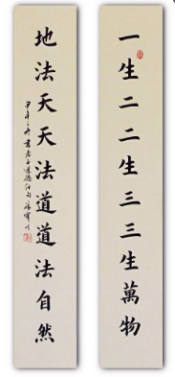 一生二二生三三生萬物
地法天天法道道法自然